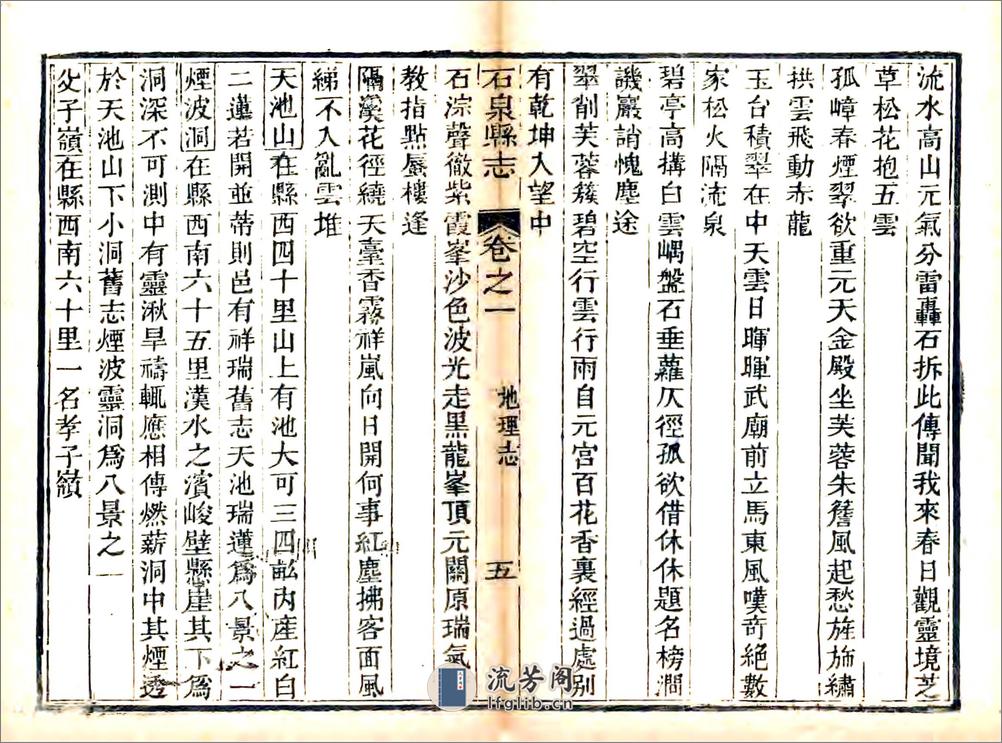 流水高山元氣分雷轟石拆此傳聞我來春日觀靈境芝
草松花抱五雲
孤嶂春煙翠欲重元天金殿坐芙蓉朱簷風起愁旌旆繡
拱雲飛動赤龍
玉台積翠在中天雲日暉暉武廟前立馬東風嘆奇絕數
家松火隔流泉
碧亭高搆白雲嵎盤石垂蘿仄徑孤欲借休休題名榜澗
譏巖誚愧塵途
翠削芙蓉簇碧空行雲行雨自元宮百花香裏經過處別
有乾坤入望中
石泉縣志 卷之一 地理志 五
石淙聲徹紫霞峯沙色波光走黑龍峯頂元關原瑞氣
教指點蜃樓逢
隔溪花徑繞天臺香霧祥嵐向日開何事紅塵拂客面風
綈不入亂雲堆
天池山在縣西四十里山上有池大可三四畝內產紅白
二蓮若開並蒂則邑有祥瑞舊志天池瑞蓮為八景之一
煙波洞在縣西南六十五里漢水之濱峻壁懸崖其下為
洞深不可測中有靈湫旱禱輒應相傳燃薪洞中其煙透
於天池山下小洞舊志煙波靈洞為八景之一
父子嶺在縣西南六十里一名孝子嶺
流芳阁
lfglib.cn